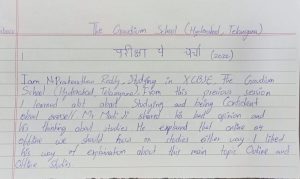 The Gaudium School (Hyderabad, Telangana)
परीक्षा पे चर्चा (2026)
I am N. Prabhathan Reddy, Studying in X CBSE, The Gaudium
School (Hyderabad, Telangana). From this previous session
I learned alot about Studying and being Confident
about ourself. Mr Modi Ji shared his best opinion and
his thinking about studies He explained that online or
offline we should focus on studies either way. I liked
his way of explanation about this main topic Online and
Offline Studies